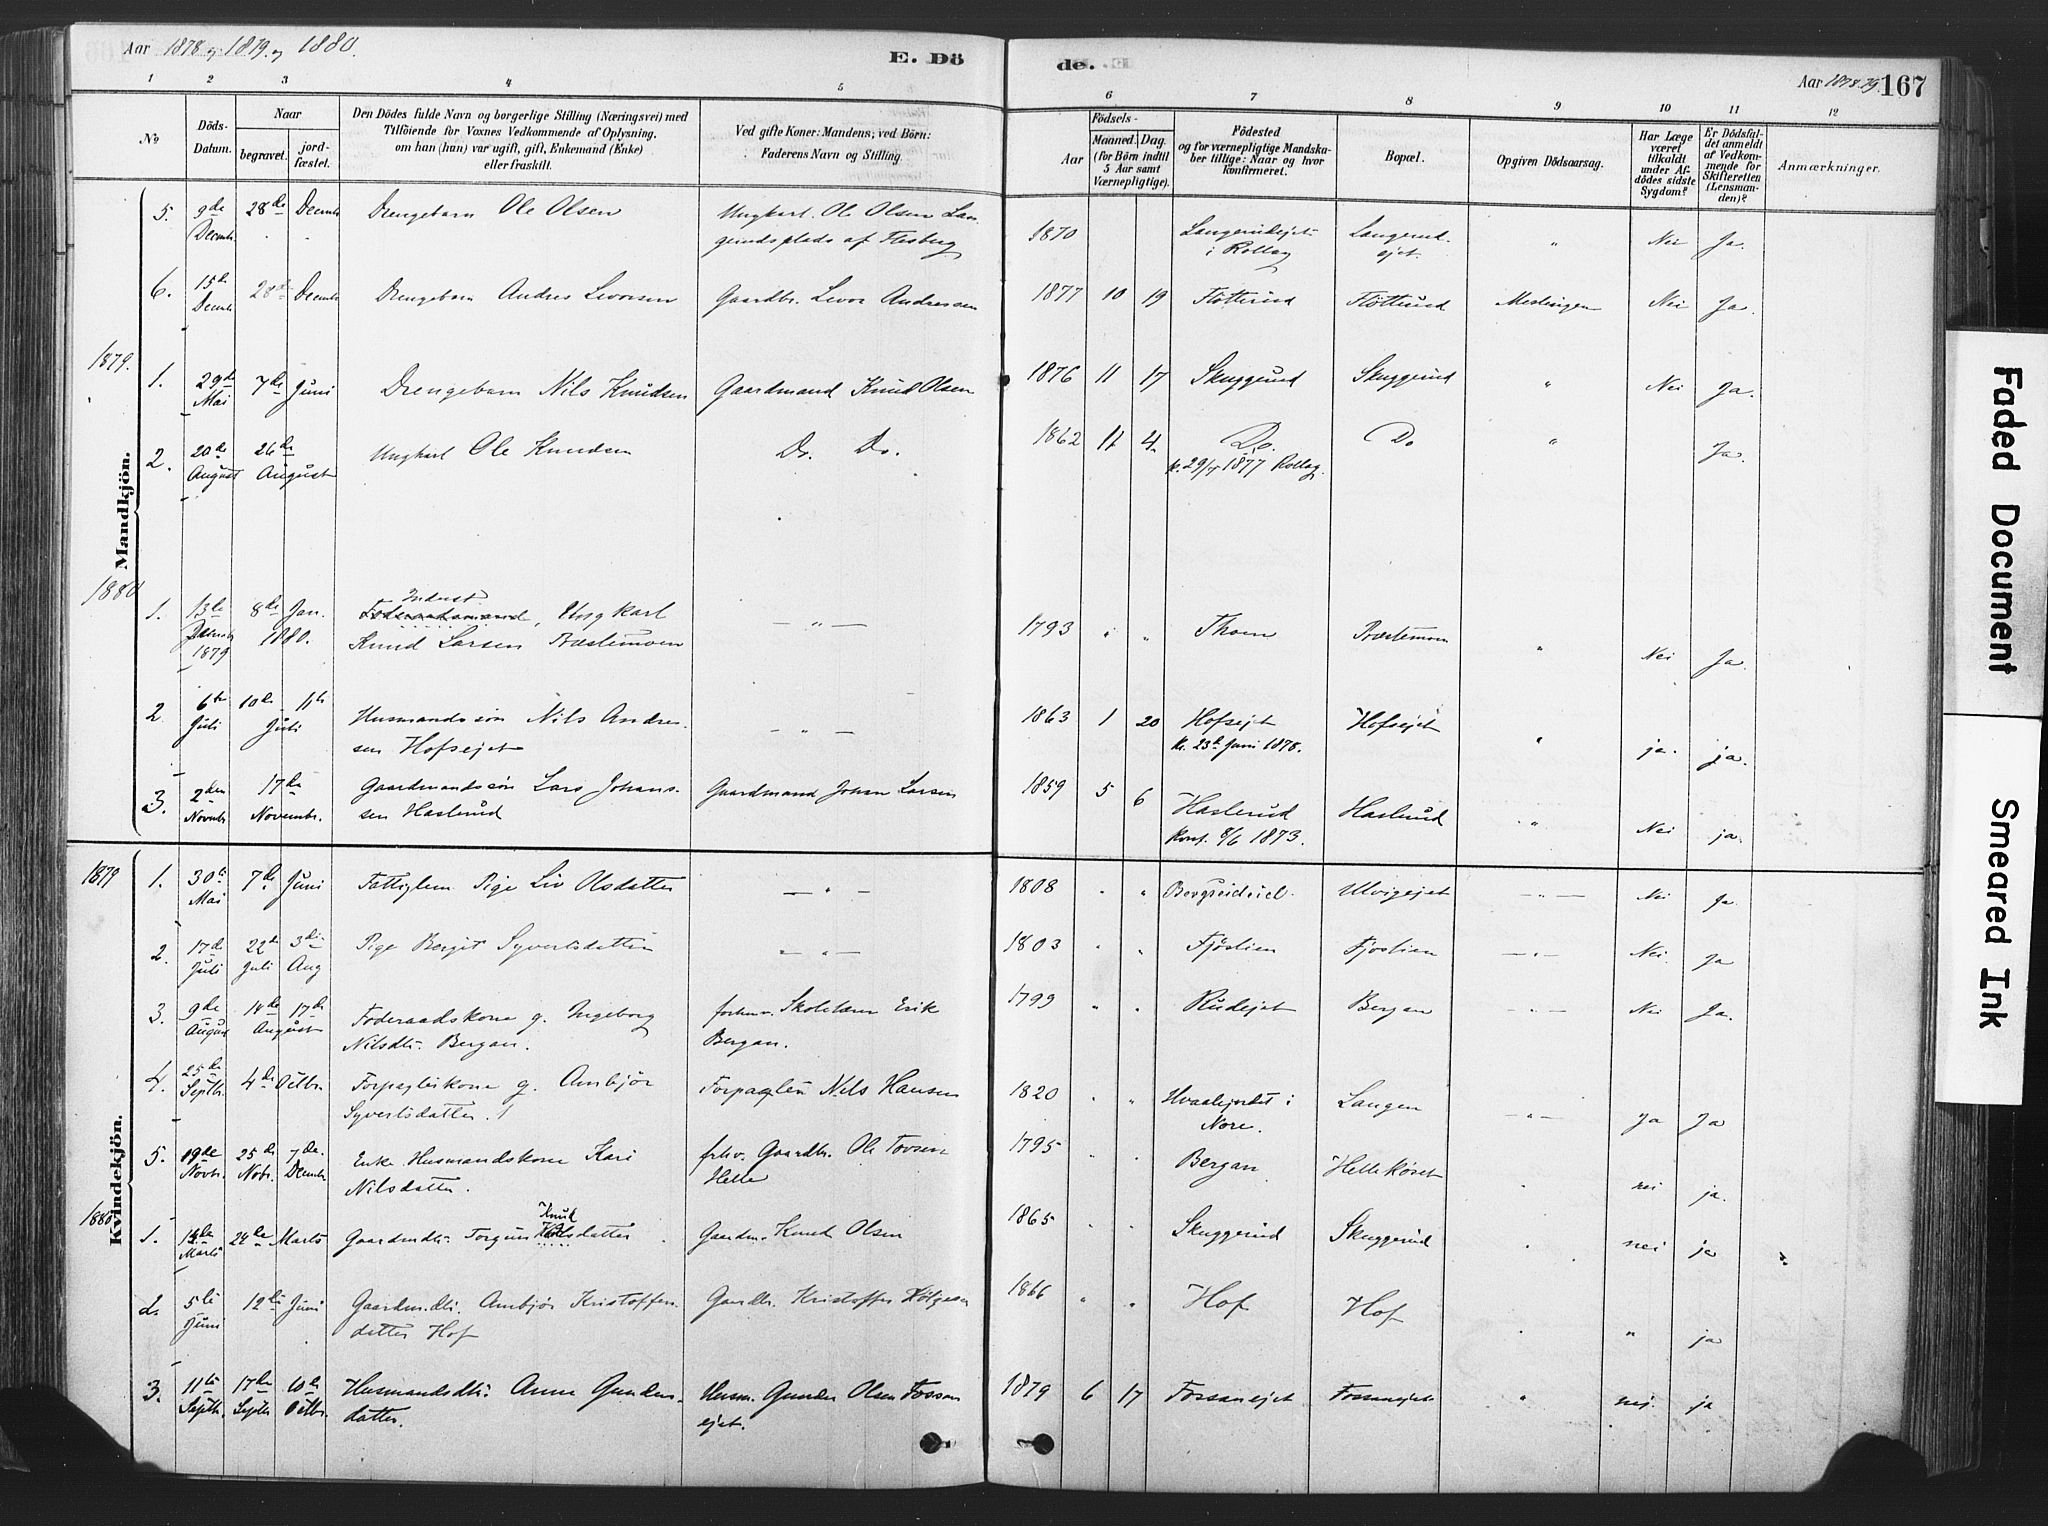 Aar 1878 og 1879 og 1880.
E. Dö
de.
Aar 1878. 79.
167
1 2 3 4 5 6 7 8 9 10 11 12
No
Döds-
Datum.
Naar
begravet.
jord-
fæstet.
Den Dödes fulde Navn og borgerlige Stilling (Næringsvei) med
Tilföiende for Voxnes Vedkommende af Oplysning.
om han (hun) var ugift, gift, Enkemand (Enke)
eller fraskilt.
Ved gifte Koner: Mandens; ved Börn:
Faderens Navn og Stilling
Födsels-
Aar
Maaned. Dag.
(for Börn indtil
5 Aar samt
Værnepligtige).
Födested
og for værnepligtige Mandska-
ber tillige: Naar og hvor
konfirmeret.
Bopæl.
Opgiven Dödsaarsag.
Har Læge
været
tilkaldt
under Af-
dödes sidste
Sygdom?
Er Dödsfal-
det anmeldt
af Vedkom-
mende for
Skifteretten
(Lensman-
den)?
Anmærkninger.
Mandkjön.
5. 9de Decmbr. 28de Decmbr Drengebarn Ole Olsen Ungkarl. Ole Olsen Lan-
gerudsplads af Flesberg 1870 Langerudejet i Rollag Langerud-
ejet. " Nei Ja.
6. 15de Decmbr 28de Decmbr Drengebarn Andres Levorsen Gaardbr. Levor Andressen 1877 10 19 Fløtterud Fløtterud Meslingen Nei Ja.
1879.
1. 29de Mai 7de Juni Drengebarn Nils Knudsen Gaardmand Knud Olsen 1876 11 17 Skuggerud Skuggerud " Nei Ja.
2. 20de August 26de August Ungkarl Ole Knudsen Do. Do. 1862 11 4. Do. Do " Ja.
1877 Rollag.
1880
1. 13de 1879 8de Jan. 1880. Inderst
Foderaadsmand, Ungkarl
Knud Larsen Præstemoen — " — 1793 " " Thoen Præstemoen " Nei Ja.
2. 6te Juli 10de 11te Juli Husmandssøn Nils Andre-
sen Hofsejet — " — 1863 1 20 Hofsejet Hofsejet " ja. ja.
k. 23de Juni 1878.
3. 2den Novmbr. 17de Novembr. Gaardmandssøn Lars Johans-
sen Haslerud Gaardmand Johan Larsen 1859 5 6 Haslerud Haslerud " Nei ja.
Konf. 8/6 1873.
Kvindekjön.
1879
1. 30te Mai 7de Juni Fattiglem Pige Liv Olsdatter — " — 1808 " " Ulvigejet — " — Nei Ja.
2. 17de Juli 22de Juli 3die Aug Pige Bergit Syvertsdatter — " — 1803 " " Fjøslien Fjøslien — " — Nei. Ja
3. 9de August 14de 17de August Føderaadskone g. Ingeborg
Nilsdtr. Bergan. forhenv. Skolelærer Erik
Bergan. 1799 " " Rudejet Bergan — " — Nei Ja.
4. 25de Septbr. 4de Octbr. Forpagterkone g. Ambjør
Syvertsdatter. Forpagter Nils Hansen 1820 " " i Nore. Langen — " — Ja Ja
5. 19de Novbr. 25de Nobr. 7de Decmbr Enke Husmandskone Kari
Nilsdatter. frhv. Gaardbr. Ole Tovsen
Helle 1795 " " Bergan Hellekåset " nei ja.
1880
1. Marts 24de Marts Gaardmdtr. Torgun Knudsdatter Gaardm. Knud Olsen 1865 " " Skuggerud Skuggerud " nei ja
2. 5te Juni 12te Juni Gaardmdtr. Ambjør Kristoffers-
datter Hof Gaardbr. Kristoffer Helgesen 1866 " " Hof Hof " " ja
3. 11te Septbr. 17de Septbr 10de Octbr. Husmandsdtr. Anne Gunders-
datter. Husm. Gunder Olsen Fossan-
ejet. 1879 6 17 Fossanejet Fossanejet " nei. ja
Faded Document
Smeared Ink